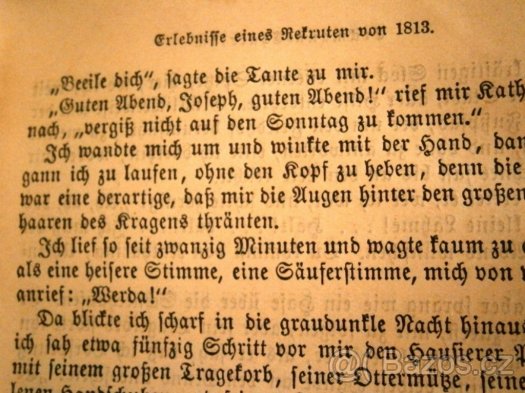 Erlebnisse eines Rekruten von 1813.
„Beeile dich“, sagte die Tante zu mir.
„Guten Abend, Joseph, guten Abend!“ rief mir Kath
nach, „vergiß nicht auf den Sonntag zu kommen.“
Ich wandte mich um und winkte mit der Hand, dan
gann ich zu laufen, ohne den Kopf zu heben, denn die
war eine derartige, daß mir die Augen hinter den großen
haaren des Kragens thränten.
Ich lief so seit zwanzig Minuten und wagte kaum zu
als eine heisere Stimme, eine Säuferstimme, mich von
anrief: „Werda!“
Da blickte ich scharf in die graudunkle Nacht hinaus
ich sah etwa fünfzig Schritt vor mir den Hausierer
mit seinem großen Tragekorb, seiner Ottermütze, seine
lenen Handschuhen
Bazos.cz